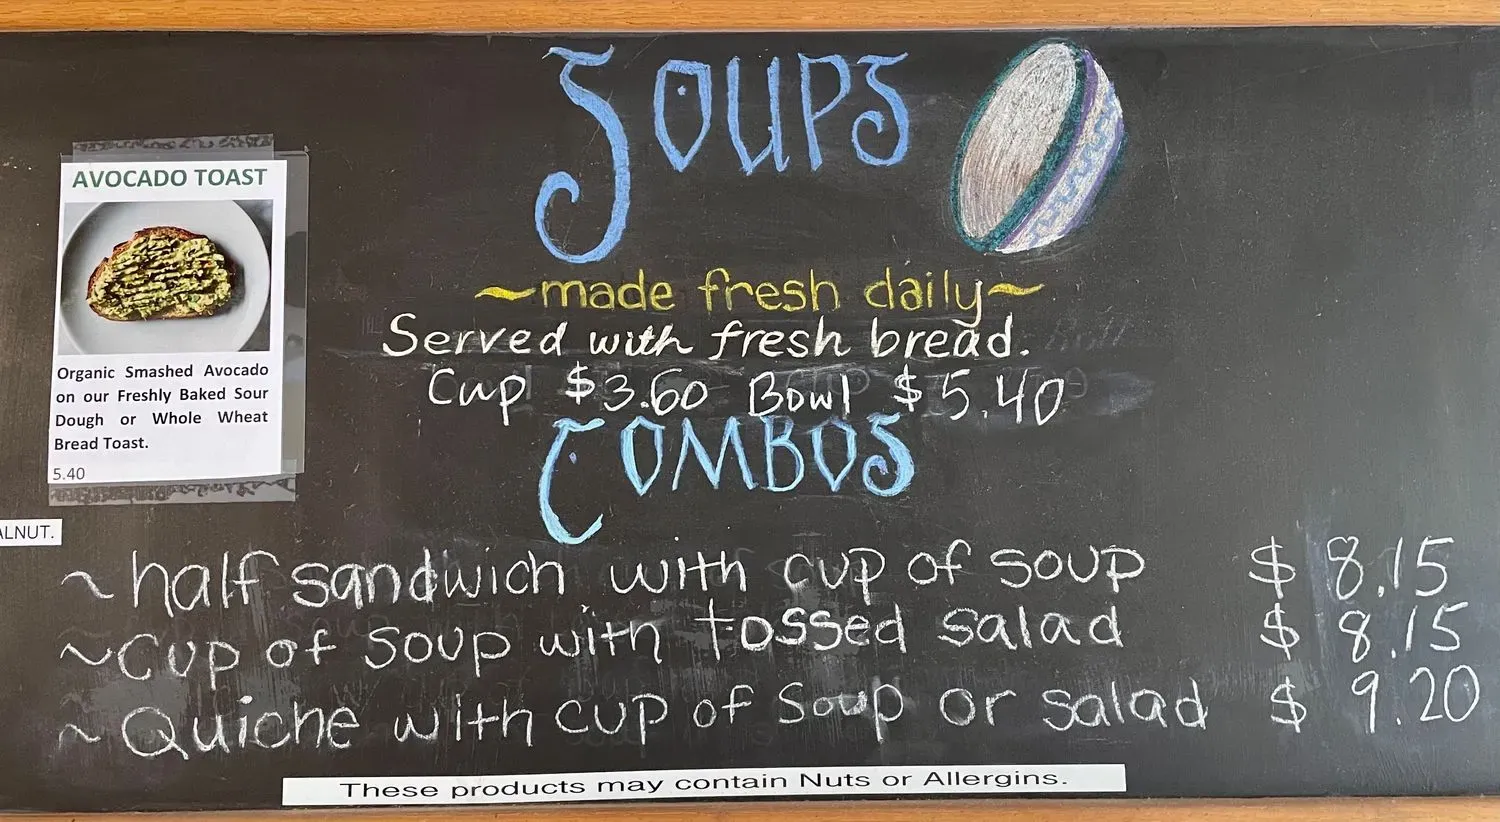 SOUPS
~made fresh daily~
Served with fresh bread.
Cup $3.60 Bowl $5.40
AVOCADO TOAST
Organic Smashed Avocado
on our Freshly Baked Sour
Dough or Whole Wheat
Bread Toast.
5.40
ALNUT.
COMBOS
~half sandwich with cup of soup $8.15
~Cup of soup with tossed salad $8.15
~Quiche with cup of soup or salad $9.20
These products may contain Nuts or Allergins.